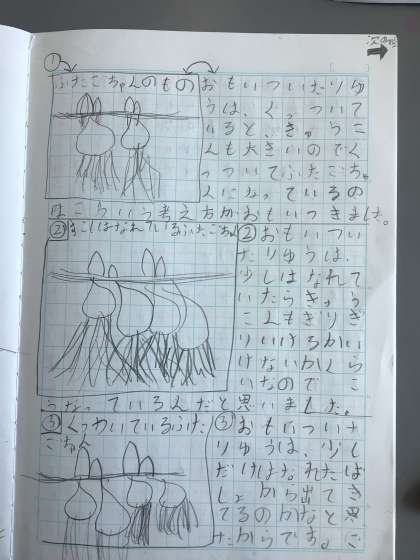 次の発
① ふたごちゃんのもの
おもいついたりゆ
うは、くっついて
いると、きゅうこ
んも大きいのでく
っついてふたごちゃ
んになっているの
はこういう考え方がおもいつきました。
② すこしはなれているふたごちゃん
② おもいつい
たりゅうは、
少しはなれて
いたらきゅう
こんもぎりぎ
りいけるかい
けないかくら
いなので こ
うなっているんだと思いました。
③ くっついているふたごちゃん
③ おもいつい
りゅうは、少し
だけはなれたば
しょから出てき
てるのかなと思
たからです。こ